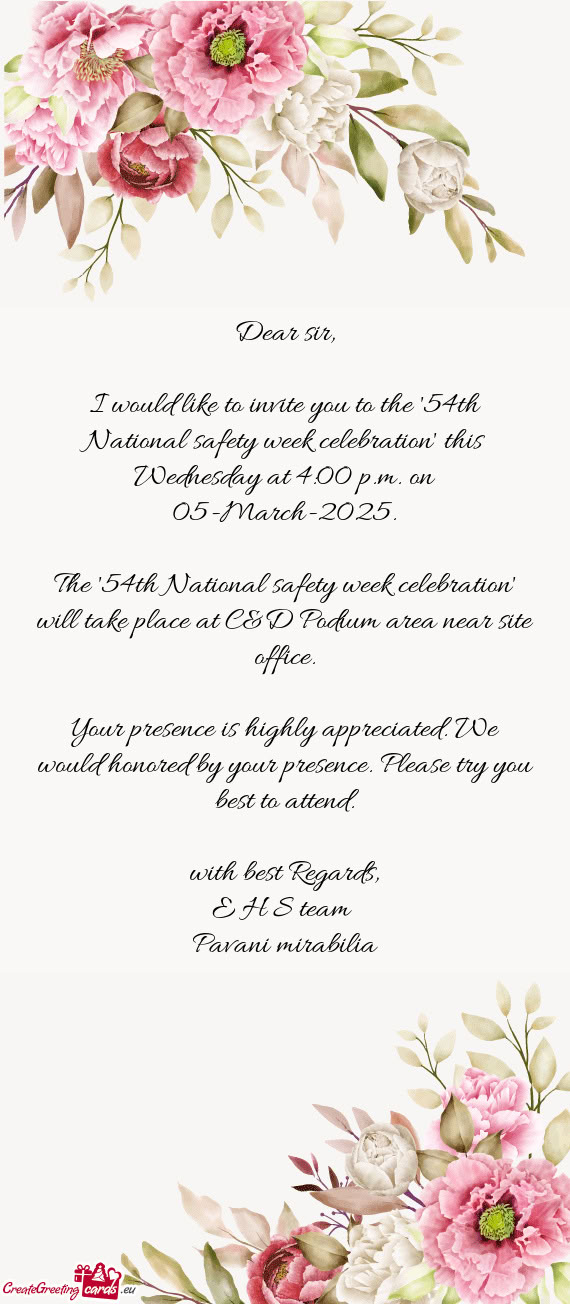 Dear sir,
I would like to invite you to the '54th
National safety week celebration' this
Wednesday at 4:00 p.m. on
05-March-2025.
The '54th National safety week celebration'
will take place at C&D Podium area near site
office.
Your presence is highly appreciated. We
would honored by your presence. Please try you
best to attend.
with best Regards,
E H S team
Pavani mirabilia
CreateGreeting cards .eu